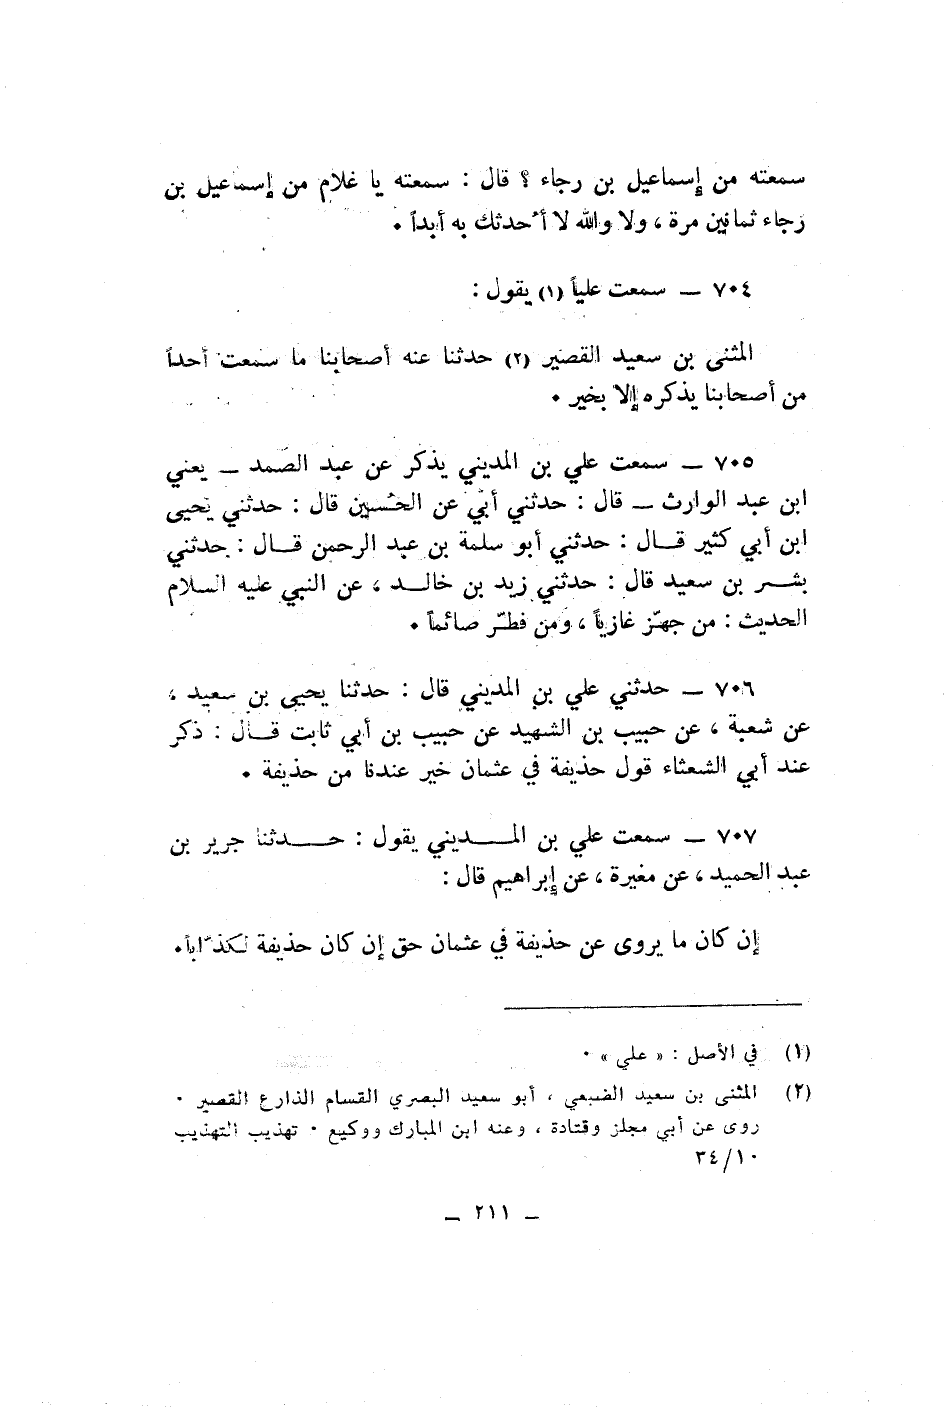 سمعته من إسماعيل بن رجاء ؟ قال : سمعته يا غلام من إسماعيل بن
رجاء ثمانين مرة ، ولا والله لا أُحدثك به أبداً .
٧٠٤ ــ سمعت علياً (١) يقول :
المثنى بن سعيد القصير (٢) حدثنا عنه أصحابنا ما سمعت أحداً
من أصحابنا يذكره إلا بخير .
٧٠٥ ــ سمعت علي بن المديني يذكر عن عبد الصمد ــ يعني
ابن عبد الوارث ــ قال : حدثني أبي عن الحسين قال : حدثني يحيى
ابن أبي كثير قال : حدثني أبو سلمة بن عبد الرحمن قال : حدثني
بشر بن سعيد قال : حدثني زيد بن خالد ، عن النبي عليه السلام
الحديث : من جهّز غازياً ، ومن فطّر صائماً .
٧٠٦ ــ حدثني علي بن المديني قال : حدثنا يحيى بن سعيد ،
عن شعبة ، عن حبيب بن الشهيد عن حبيب بن أبي ثابت قال : ذكر
عند أبي الشعثاء قول حذيفة في عثمان خير عندنا من حذيفة .
٧٠٧ ــ سمعت علي بن المديني يقول : حدثنا جرير بن
عبد الحميد ، عن مغيرة ، عن إبراهيم قال :
إن كان ما يروى عن حذيفة في عثمان حق إن كان حذيفة لكذّاباً .
(١) في الأصل : « علي » .
(٢) المثنى بن سعيد الضبعي ، أبو سعيد البصري القسام الذارع القصير .
روى عن أبي مجلز وقتادة ، وعنه ابن المبارك ووكيع . تهذيب التهذيب
٣٤/١٠
ــ ٢١١ ــ